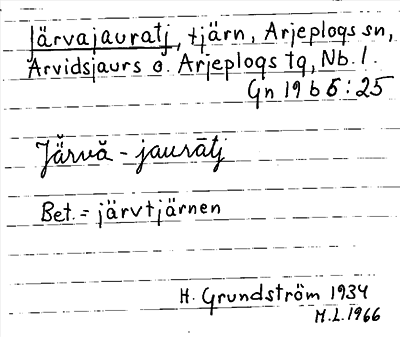 Järvajauratj, tjärn, Arjeplogs sn,
Arvidsjaurs o. Arjeplogs tg, Nb. l.
Gn 1965:25
Jär̆vă - jaurātj
Bet. = järvtjärnen
H. Grundström 1934
M.L. 1966